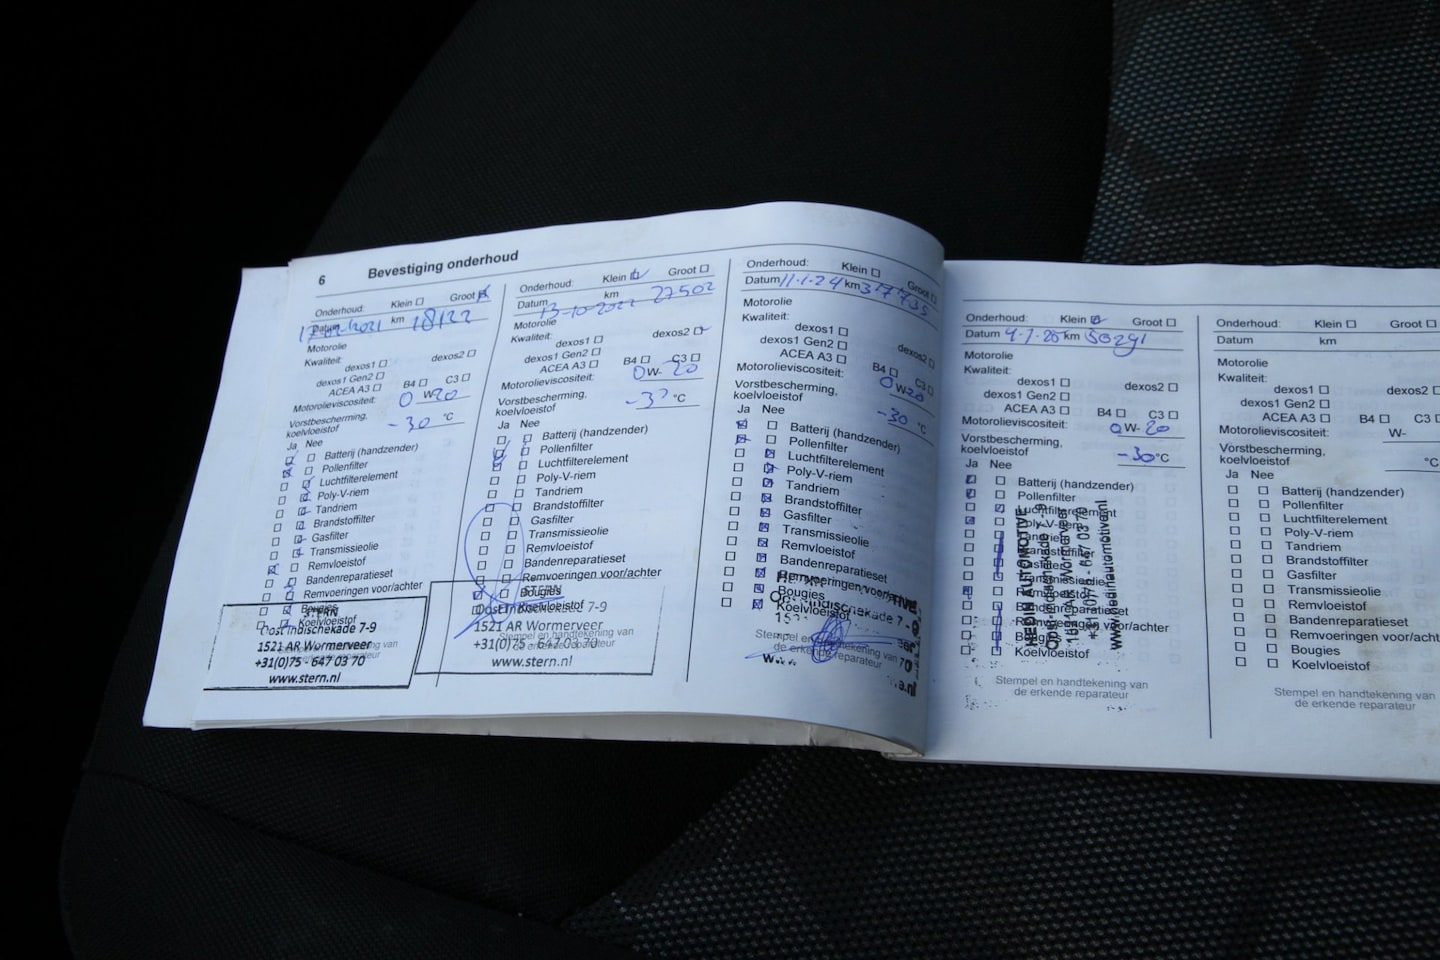 6 Bevestiging onderhoud
Onderhoud: Klein Groot
Datum 17-02-2021 km 18122
Motorolie
Kwaliteit:
dexos1 dexos2
dexos1 Gen2
ACEA A3 B4 C3
Motorolieviscositeit: 0 W-20
Vorstbescherming,
koelvloeistof -30 °C
Ja Nee
Batterij (handzender)
Pollenfilter
Luchtfilterelement
Poly-V-riem
Tandriem
Brandstoffilter
Gasfilter
Transmissieolie
Remvloeistof
Bandenreparatieset
Remvoeringen voor/achter
Bougies
Koelvloeistof
STERN
Oost Indischekade 7-9
1521 AR Wormerveer
+31(0)75 - 647 03 70
www.stern.nl
Onderhoud: Klein Groot
Datum 13-10-2022 km 27502
Motorolie
Kwaliteit:
dexos1 dexos2
dexos1 Gen2
ACEA A3 B4 C3
Motorolieviscositeit: 0 W-20
Vorstbescherming,
koelvloeistof °C
Ja Nee
Batterij (handzender)
Pollenfilter
Luchtfilterelement
Poly-V-riem
Tandriem
Brandstoffilter
Gasfilter
Transmissieolie
Remvloeistof
Bandenreparatieset
Remvoeringen voor/achter
Bougies
Koelvloeistof
Stempel en handtekening van
de erkende reparateur
STERN
Oost Indischekade 7-9
1521 AR Wormerveer
+31(0)75 - 647 03 70
www.stern.nl
Onderhoud: Klein Groot
Datum 11-1-24 km
Motorolie
Kwaliteit:
dexos1 dexos2
dexos1 Gen2
ACEA A3 B4 C3
Motorolieviscositeit: 0 W-20
Vorstbescherming,
koelvloeistof -30 °C
Ja Nee
Batterij (handzender)
Pollenfilter
Luchtfilterelement
Poly-V-riem
Tandriem
Brandstoffilter
Gasfilter
Transmissieolie
Remvloeistof
Bandenreparatieset
Remvoeringen voor/achter
Bougies
Koelvloeistof
Stempel en handtekening van
de erkende reparateur
Onderhoud: Klein Groot
Datum km 50291
Motorolie
Kwaliteit:
dexos1 dexos2
dexos1 Gen2
ACEA A3 B4 C3
Motorolieviscositeit: 0 W-20
Vorstbescherming,
koelvloeistof -30 °C
Ja Nee
Batterij (handzender)
Pollenfilter
Luchtfilterelement
Poly-V-riem
Tandriem
Brandstoffilter
Gasfilter
Transmissieolie
Remvloeistof
Bandenreparatieset
Remvoeringen voor/achter
Bougies
Koelvloeistof
Stempel en handtekening van
de erkende reparateur
HEDIN AUTOMOTIVE
Oost-Indischekade 7-9
1521 AR Wormerveer
+31(0)75 - 647 03 70
www.hedinautomotive.nl
Onderhoud: Klein Groot
Datum km
Motorolie
Kwaliteit:
dexos1 dexos2
dexos1 Gen2
ACEA A3 B4 C3
Motorolieviscositeit: W-
Vorstbescherming,
koelvloeistof °C
Ja Nee
Batterij (handzender)
Pollenfilter
Luchtfilterelement
Poly-V-riem
Tandriem
Brandstoffilter
Gasfilter
Transmissieolie
Remvloeistof
Bandenreparatieset
Remvoeringen voor/acht
Bougies
Koelvloeistof
Stempel en handtekening van
de erkende reparateur